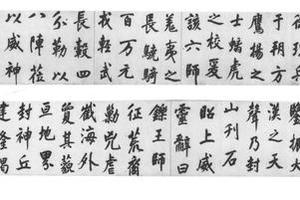 于朔方
鷹揚之
士螭虎
之校爰
該六師
羌夷之
長驍騎
百万元
戎輕武
長轂四
分勒以
八陣莅
以威神
振大
漢之天
聲乃封
山刊石
昭上威
靈辭曰
鑠王師
征荒裔
勦兇虐
截海外
夐其藐
亘地界
封神丘
建隆嵑